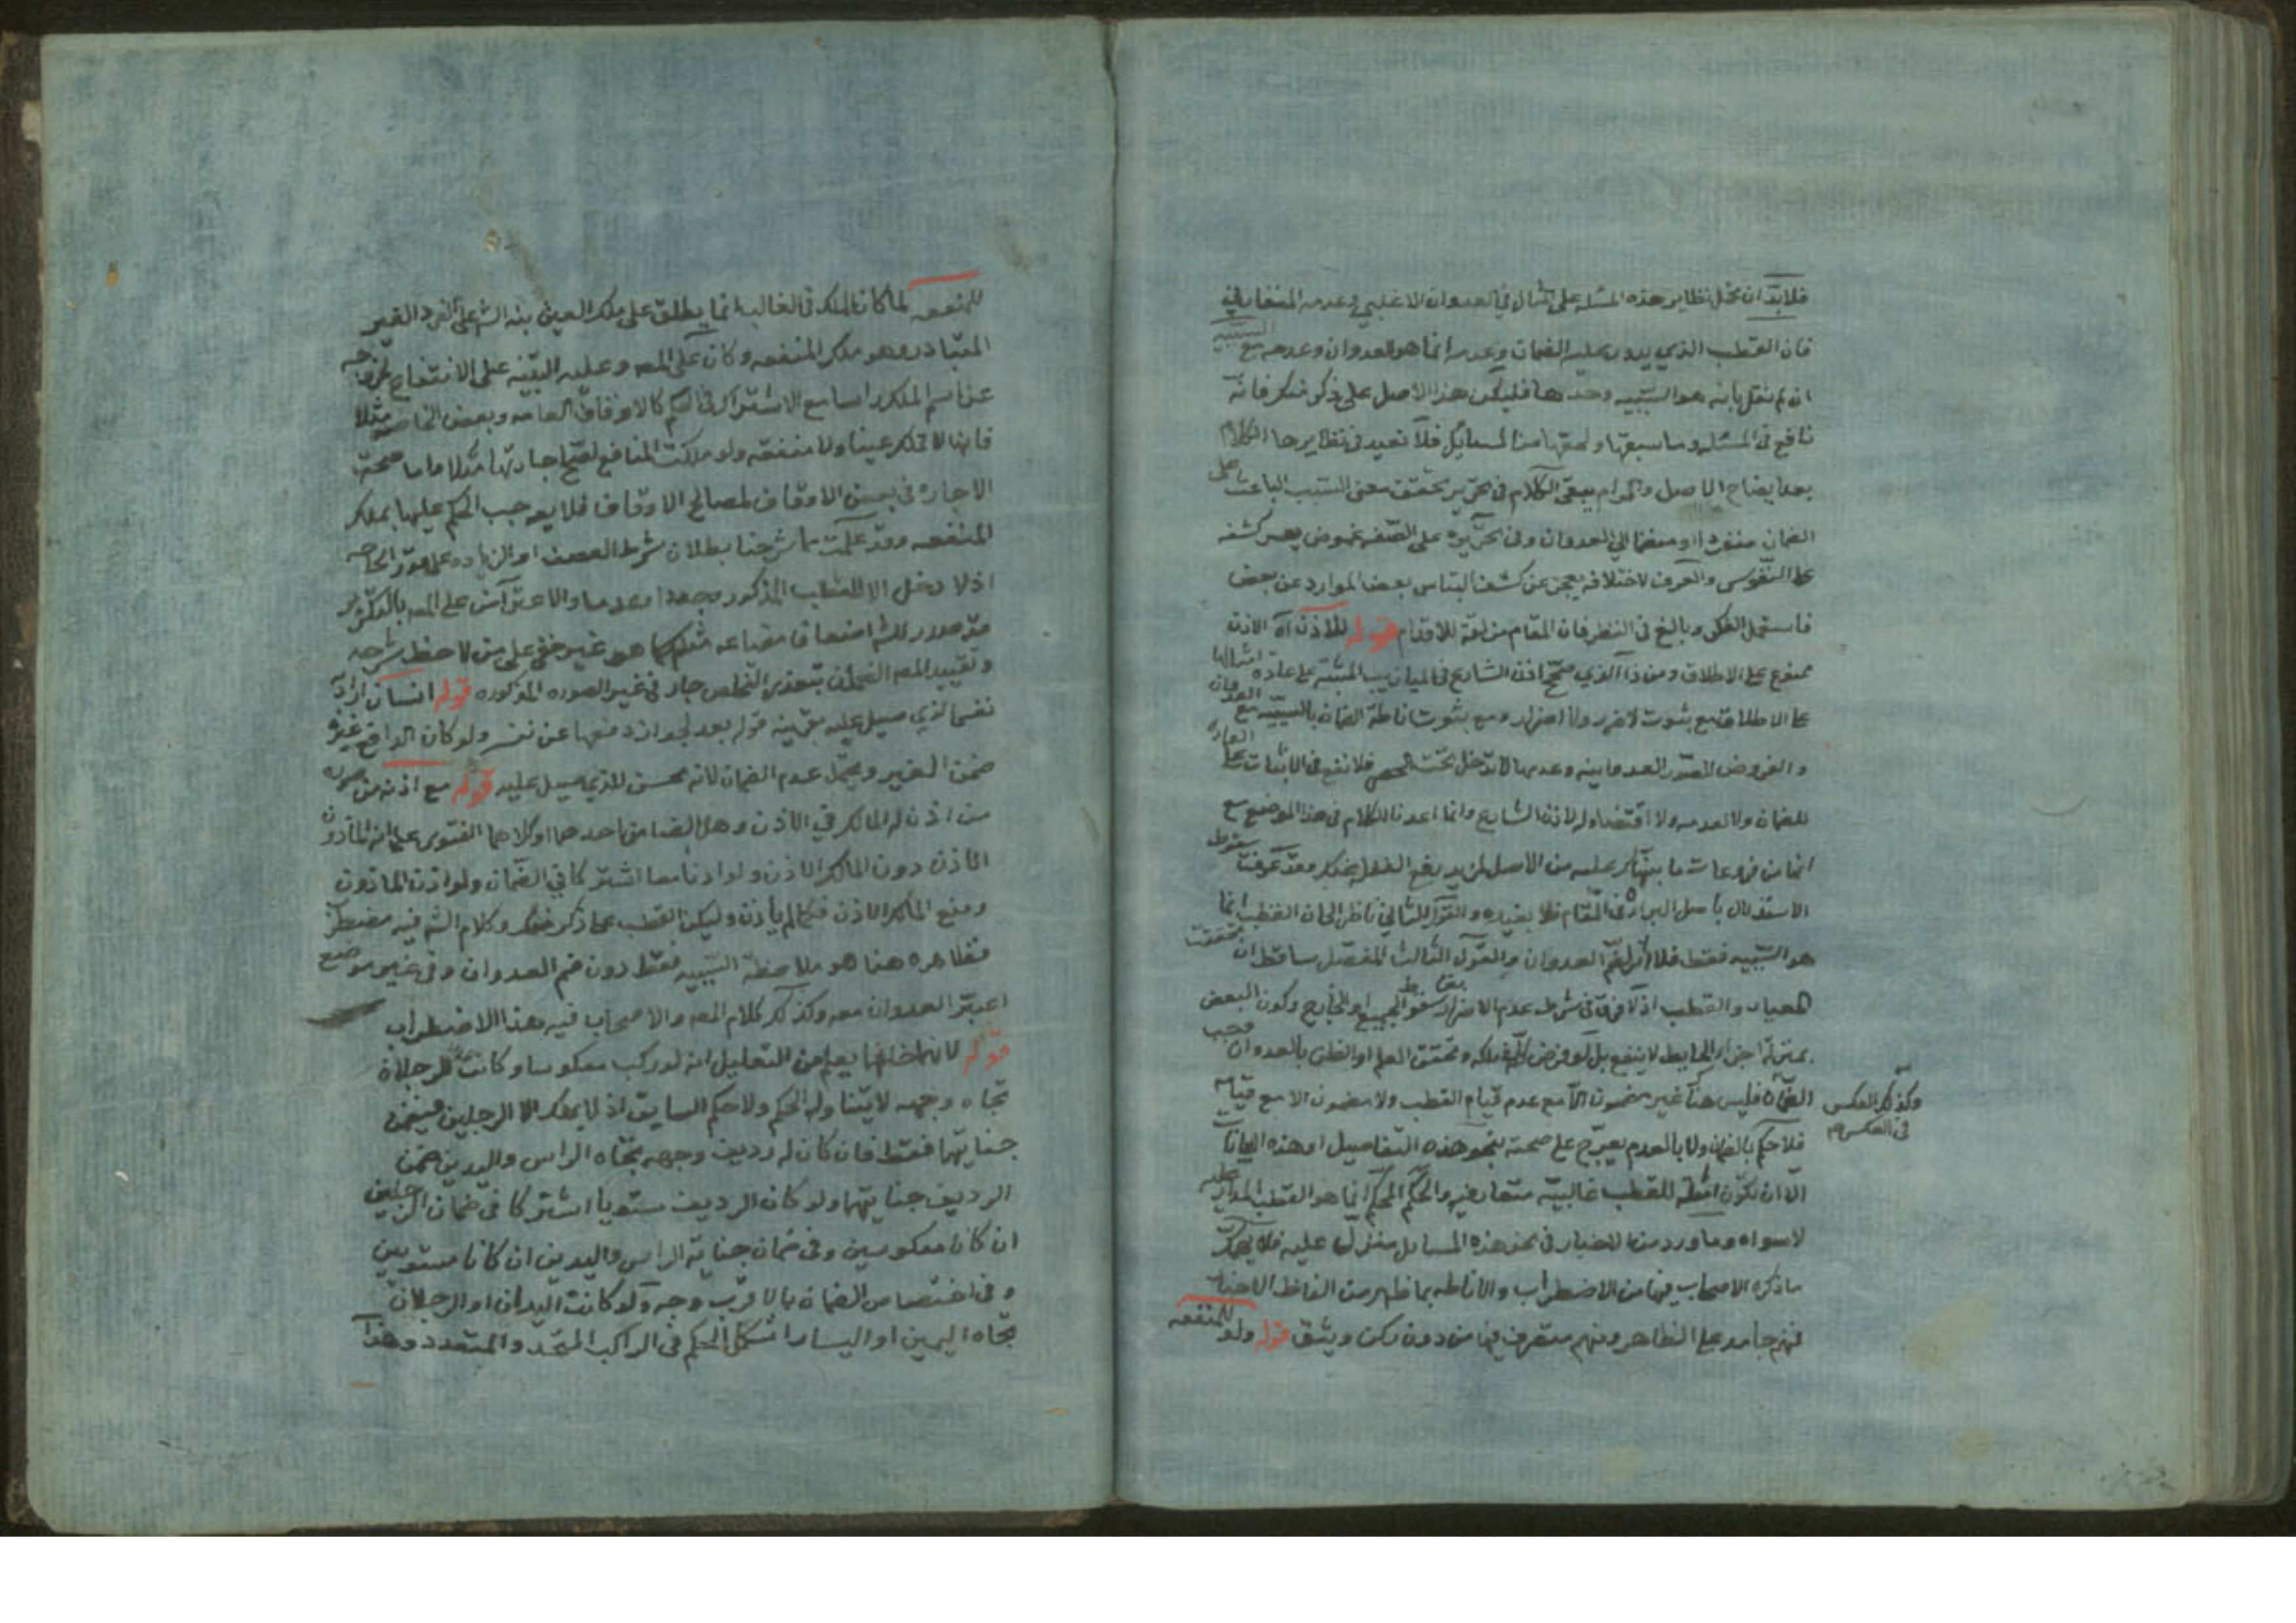 فلابد ان نظاير هذه المسئله على العدوان
فان القطب الذي يدور عليه الضمان وعدمه انما هو العدوان وعدمه مع السببيه
ان لم نقل بانه هو السببيه وحدها فليكن هذا الاصل على ذكر منك فانه
نافع في المسئله وما سبقها ولحقها من المسايل فلا نعيد في نظايرها الكلام
بعد ايضاح الاصل والمرام يبقى الكلام في تحرير تحقق معنى السبب الباعث على
الضمان منفردا او منضما الي العدوان وفي تحريره على الصنف غموض يعسر كشفه
على النفوس والعرف لاختلافه يعجز عن كشف التباس بعض الموارد عن بعض
فاستعمل الفكر وبالغ في النظر فان المقام مزلقة للاقدام قوله للاذن آه الاذن
ممنوع على الاطلاق ومن ذا الذي صحح اذن الشارع في الميازيب المثبتة على عادة امثالها
على الاطلاق مع ثبوت لاضرر ولا اضرار ومع ثبوت اناطة الضمان بالسببيه مع العدوان
والفروض المصور العدوانيه وعدمها لا تدخل تحت الحصر فلا نفع في الاثبات
للضمان ولا لعدمه ولا اقتضاء له لاذن الشارع وانما اعدنا الكلام في هذا الموضع مع
انها من فروعات ما نبهناك عليه من الاصل وقد عرفت سقوط
الاستدلال باصل البراءة في المقام فلا نعيده والقول الثاني ناظر الى ان القطب انما
هو السببيه فقط فلا اثر لضم العدوان والقول الثالث المفصل ساقط ان تحققت
المعيار والقطب اذ لا فرق في شرط عدم الاضرار سقوط الجميع او الخارج وكون البعض
بمنزلة اجزاء الحايط لا ينفع بل لو فرض كله ملكه وتحقق العلم او الظن بالعدوان وجب
الضمان فليس هنا غير مضمون الا مع عدم قيام القطب ولا مضمون الا مع قيامه
وكذلك العكس في العكس
فلا حكم بالضمان ولا بالعدم يعرج على صحته بنحو هذه التفاصيل او هذه
الا ان تكون للقطب غالبيه متعارفيه والحكم المحكم انما هو القطب المدار عليه
لا سواه وما ورد من الاخبار في نحو هذه المسايل منزل عليه فلا
ما ذكره الاصحاب فيها من الاضطراب والاناطه بما ظهر من الفاظ الاخبار
فمنهم جامد على الظاهر ومنهم متصرف فيها من دون ركن وثيق قوله ولو للمنفعه
للمنفعه لما كان الملك في الغالب انما يطلق على ملك العين نبه الش على الفرد الغير
المتبادر وهو ملك المنفعه وكان على المص وعليه التنبيه على الانتفاع لخروجه
عن اسم الملك راسا مع الاشتراك في الحكم كالاوقاف العامه وبعض الخاصه مثلا
فانها لا تملك عينا ولا منفعه ولو ملكت المنافع لصح اجارتها مثلا واما صحة
الاجاره في بعض الاوقاف لمصالح الاوقاف فلا يوجب الحكم عليها بملك
المنفعه وقد علمت مما شرحنا بطلان شرط العصف او الزياده على قدر الحاجه
اذ لا دخل الا للقطب المذكور وجودا وعدما والاعتراض على المص بالتكرير
قد صدر للش اضعاف مضاعفه مثله كما هو غير خفي على من لاحظ شرحه
وتقييد المص الضمان بتعذر التخلص جار في غير الصوره المذكوره قوله انسان اراد
نفس الذي صيل عليه بقرينه قوله بعد لجواز دفعها عن نفسه ولو كان الدافع غيره
ضمن الغير ويحتمل عدم الضمان لانه محسن للذي صيل عليه قوله مع اذنه من
من اذن له المالك في الاذن وهل الضامن احدهما او كلاهما الفتوى على انه الماذون
الاذن دون المالك الاذن ولو اذنا معا اشتركا في الضمان ولو اذن الماذون
ومنع المالك الاذن فكما لم ياذن وليكن القطب مما ذكر وكلام الش فيه مضطرب
فظاهره هنا هو ملاحظة السببيه فقط دون ضم العدوان وفي غير موضع
اعتبر العدوان معه وكذلك كلام المص والاصحاب فيه هذا الاضطراب
قوله لانهما يعلم من التعليل انه لو ركب معكوسا وكانت الرجلان
تجاه وجهه لا يتناوله الحكم ولا حكم السايق اذ لا يملك الا الرجلين فيضمن
جنايتهما فقط فان كان له رديف وجهه تجاه الراس واليدين ضمن
الرديف جنايتهما ولو كان الرديف مستويا اشتركا في ضمان الرجلين
ان كانا معكوسين وفي ضمان جناية الراس واليدين ان كانا مستويين
وفي اختصاص الضمان بالاقرب وجه ولو كانت اليدان او الرجلان
تجاه اليمين او اليسار اشكل الحكم في الراكب المتحد والمتعدد وهذا